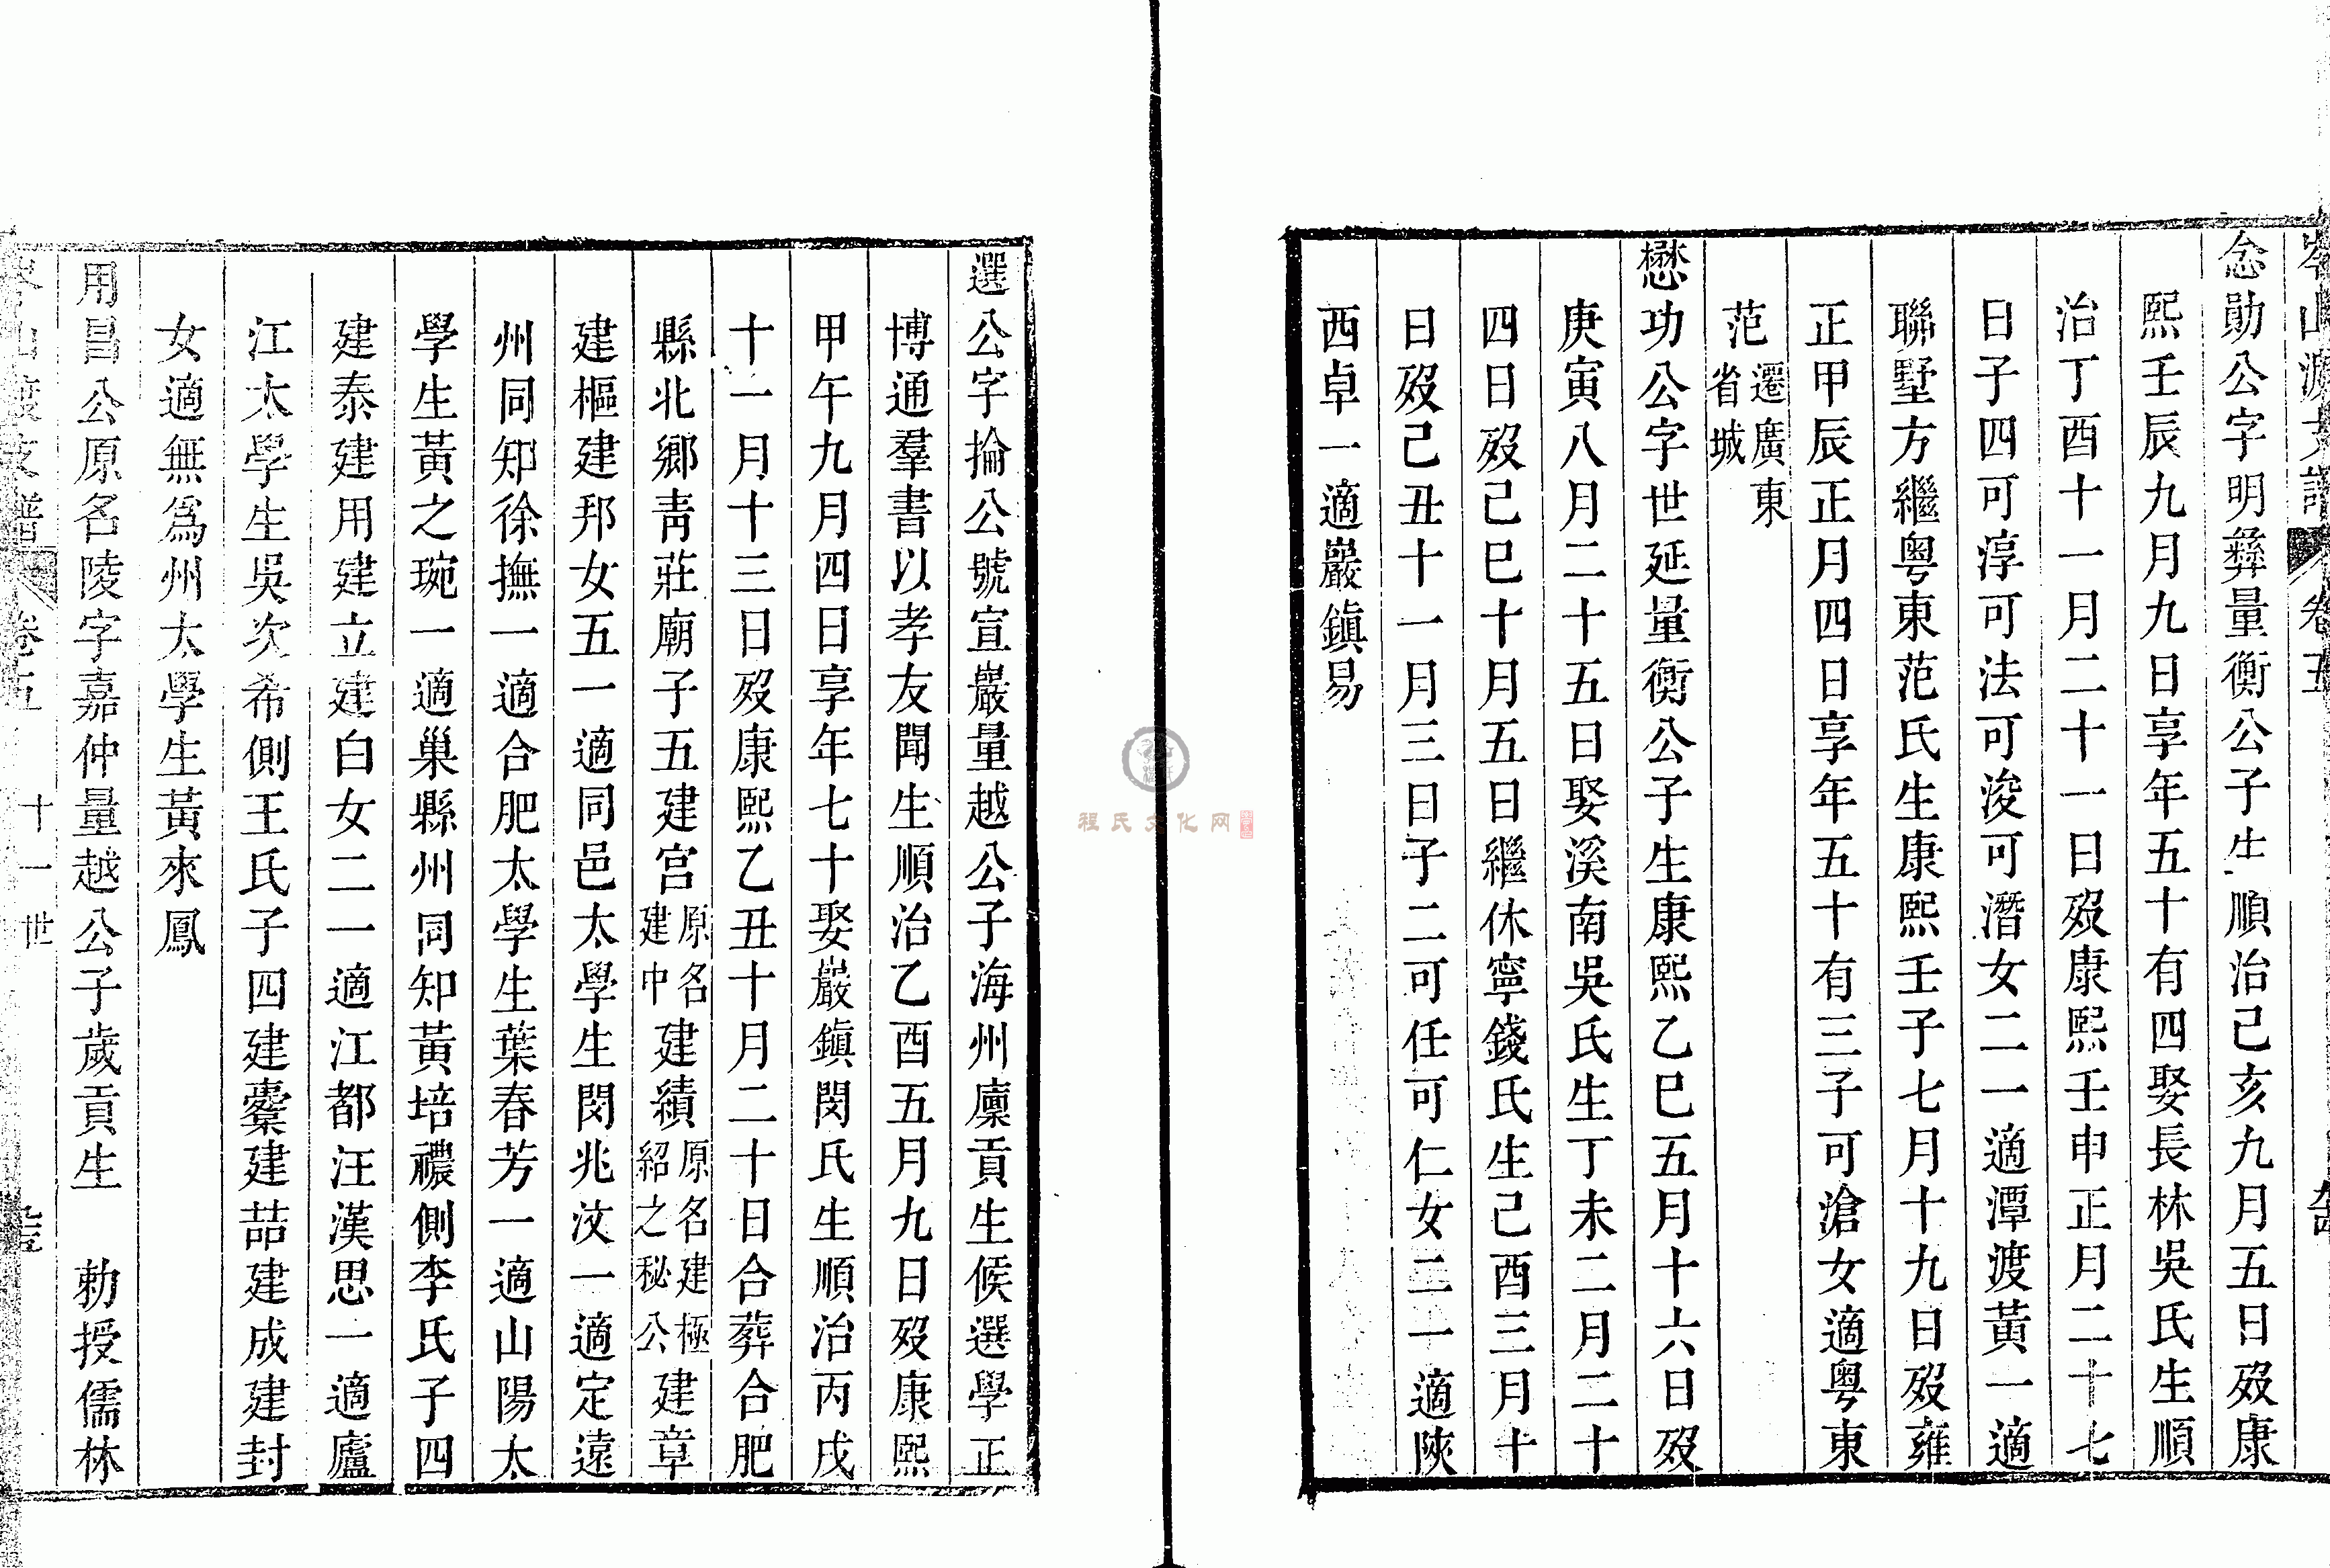 岑山渡支譜 卷五
念勛公字明彝量衡公子生順治己亥九月五日歿康
熙壬辰九月九日享年五十有四娶長林吳氏生順
治丁酉十一月二十一日歿康熙壬申正月二十七
日子四可淳可法可浚可潛女二一適潭渡黃一適
聯墅方繼粵東范氏生康熙壬子七月十九日歿雍
正甲辰正月四日享年五十有三子可滄女適粵東
范遷廣東省城
懋功公字世延量衡公子生康熙乙巳五月十六日歿
庚寅八月二十五日娶溪南吳氏生丁未二月二十
四日歿己巳十月五日繼休寧錢氏生己酉三月十
日歿己丑十一月三日子二可任可仁女二一適陝
西卓一適巖鎮易
選公字掄公號宣巖量越公子海州廩貢生候選學正
博通羣書以孝友聞生順治乙酉五月九日歿康熙
甲午九月四日享年七十娶巖鎮閔氏生順治丙戌
十一月十三日歿康熙乙丑十月二十日合葬合肥
縣北鄉青莊廟子五建宮原名建中建績原名建極紹之秘公建章
建樞建邦女五一適同邑太學生閔兆汶一適定遠
州同知徐撫一適合肥太學生葉春芳一適山陽太
學生黃之琬一適巢縣州同知黃培禯側李氏子四
建泰建用建立建白女二一適江都汪漢思一適廬
江太學生吳次希側王氏子四建櫜建喆建成建封
女適無為州太學生黃來鳳
用昌公原名陵字嘉仲量越公子歲貢生 勅授儒林
岑山渡支譜 卷五 十一世
程氏文化网